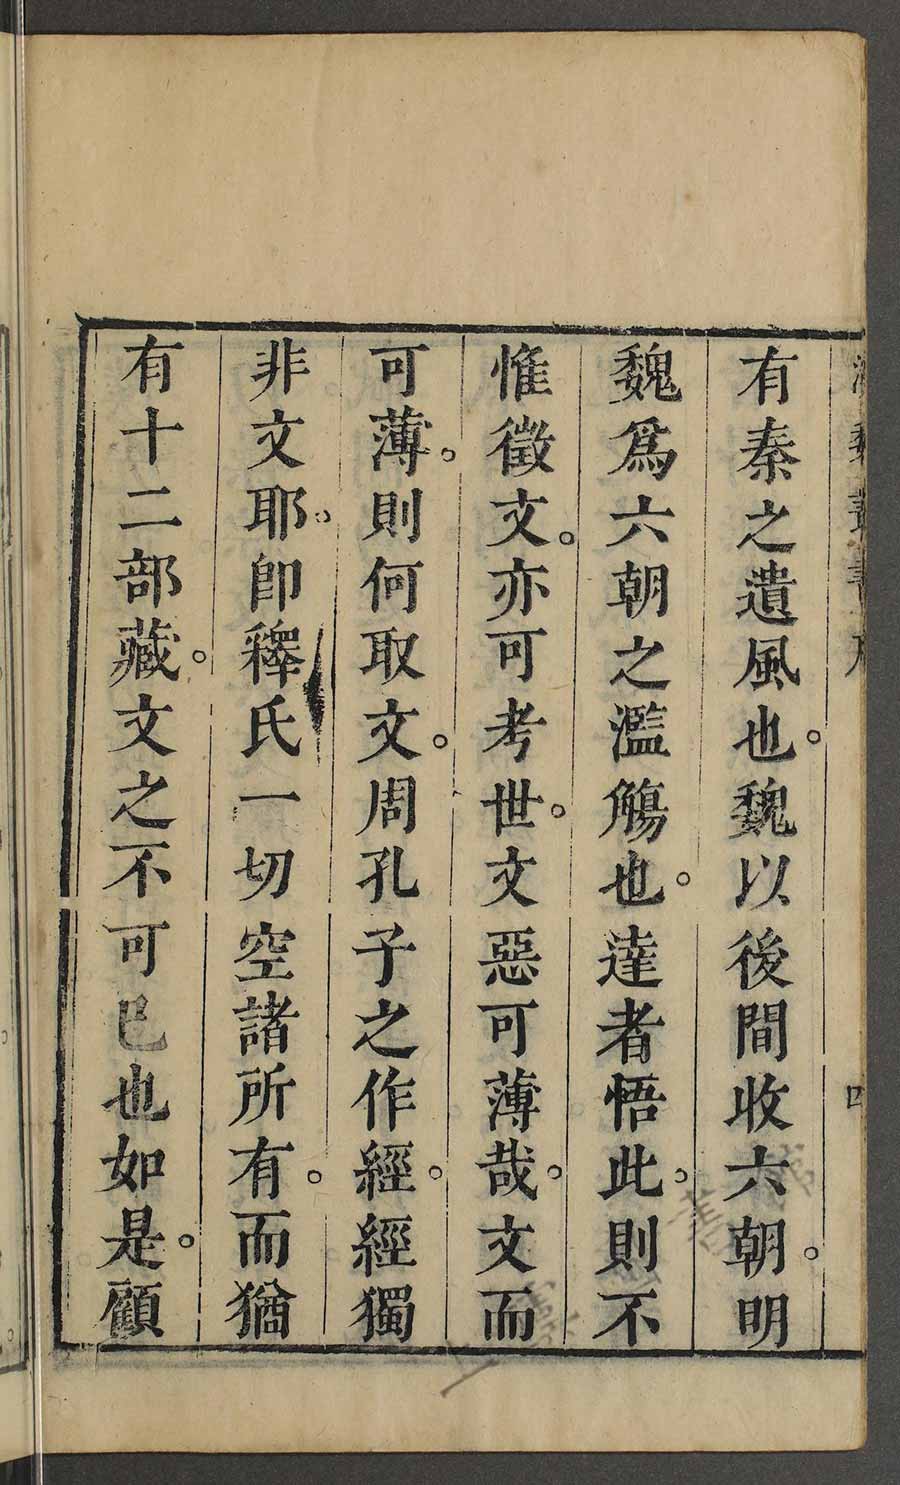 有秦之遺風也。魏以後間收六朝。明
魏爲六朝之濫觴也。達者悟此。則不
惟徵文。亦可考世。文惡可薄哉。文而
可薄。則何取文。周孔子之作經。經獨
非文耶。卽釋氏一切空諸所有。而猶
有十二部藏。文之不可已也如是。顧